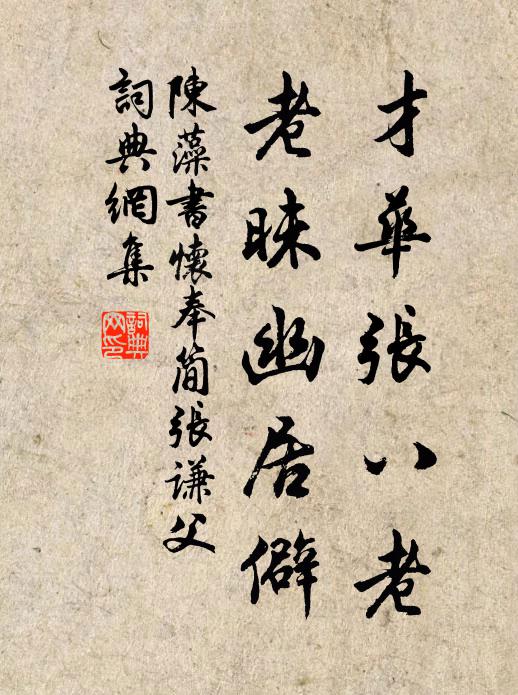 才華張八老
老昧幽居僻
陳藻書懷奉簡張謙父
詞典網集
詞典
网印